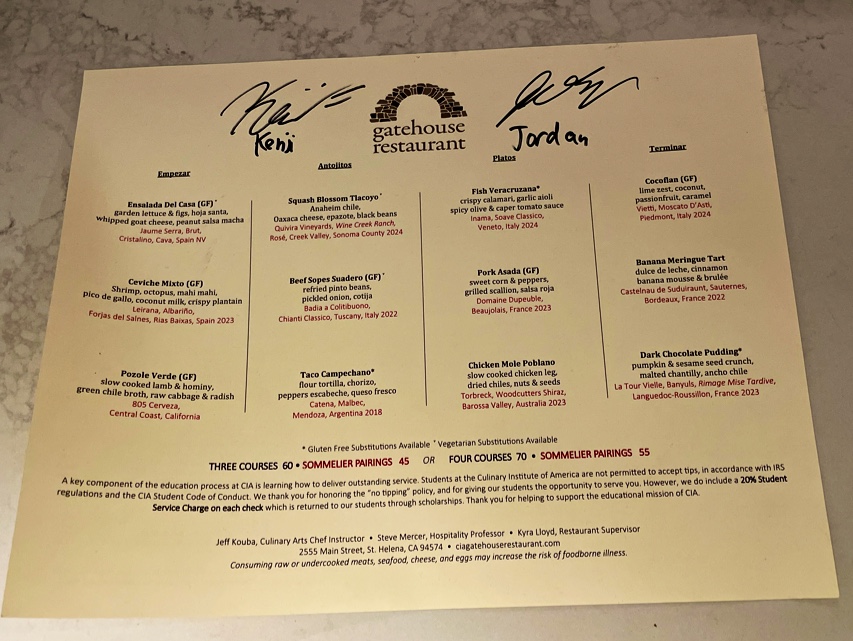 Kenji
gatehouse
restaurant
Jordan
Empezar
Ensalada Del Casa (GF)˅
garden lettuce & figs, hoja santa,
whipped goat cheese, peanut salsa macha
Jaume Serra, Brut,
Cristalino, Cava, Spain NV
Ceviche Mixto (GF)
Shrimp, octopus, mahi mahi,
pico de gallo, coconut milk, crispy plantain
Leirana, Albariño,
Forjas del Salnes, Rias Baixas, Spain 2023
Pozole Verde (GF)
slow cooked lamb & hominy,
green chile broth, raw cabbage & radish
805 Cerveza,
Central Coast, California
Antojitos
Squash Blossom Tlacoyo˅
Anaheim chile,
Oaxaca cheese, epazote, black beans
Quivira Vineyards, Wine Creek Ranch,
Rosé, Creek Valley, Sonoma County 2024
Beef Sopes Suadero (GF)˅
refried pinto beans,
pickled onion, cotija
Badia a Coltibuono,
Chianti Classico, Tuscany, Italy 2022
Taco Campechano*
flour tortilla, chorizo,
peppers escabeche, queso fresco
Catena, Malbec,
Mendoza, Argentina 2018
Platos
Fish Veracruzana*
crispy calamari, garlic aioli
spicy olive & caper tomato sauce
Inama, Soave Classico,
Veneto, Italy 2024
Pork Asada (GF)
sweet corn & peppers,
grilled scallion, salsa roja
Domaine Dupeuble,
Beaujolais, France 2023
Chicken Mole Poblano
slow cooked chicken leg,
dried chiles, nuts & seeds
Torbreck, Woodcutters Shiraz,
Barossa Valley, Australia 2023
Terminar
Cocoflan (GF)
lime zest, coconut,
passionfruit, caramel
Vietti, Moscato D'Asti,
Piedmont, Italy 2024
Banana Meringue Tart
dulce de leche, cinnamon
banana mousse & brulée
Castelnau de Suduiraunt, Sauternes,
Bordeaux, France 2022
Dark Chocolate Pudding*
pumpkin & sesame seed crunch,
malted chantilly, ancho chile
La Tour Vielle, Banyuls, Rimage Mise Tardive,
Languedoc-Roussillon, France 2023
* Gluten Free Substitutions Available ˅ Vegetarian Substitutions Available
THREE COURSES 60 • SOMMELIER PAIRINGS 45 OR FOUR COURSES 70 • SOMMELIER PAIRINGS 55
A key component of the education process at CIA is learning how to deliver outstanding service. Students at the Culinary Institute of America are not permitted to accept tips, in accordance with IRS
regulations and the CIA Student Code of Conduct. We thank you for honoring the "no tipping" policy, and for giving our students the opportunity to serve you. However, we do include a 20% Student
Service Charge on each check which is returned to our students through scholarships. Thank you for helping to support the educational mission of CIA.
Jeff Kouba, Culinary Arts Chef Instructor • Steve Mercer, Hospitality Professor • Kyra Lloyd, Restaurant Supervisor
2555 Main Street, St. Helena, CA 94574 • ciagatehouserestaurant.com
Consuming raw or undercooked meats, seafood, cheese, and eggs may increase the risk of foodborne illness.